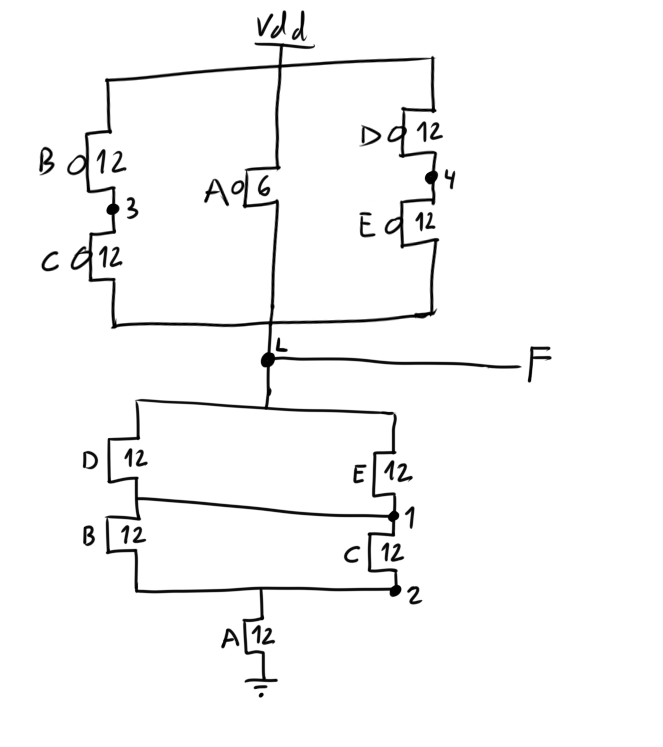 Vdd
B 12
D 12
3
A 6
4
C 12
E 12
L
F
D 12
E 12
1
B 12
C 12
2
A 12